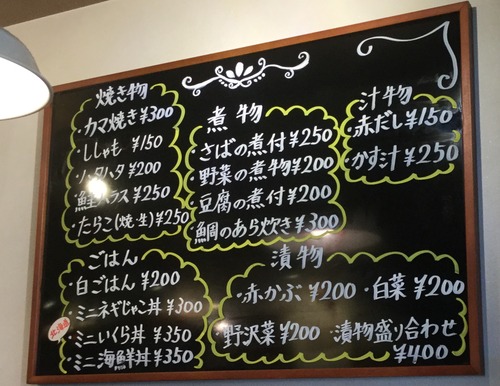 焼き物
・カマ焼き¥300
・ししゃも ¥150
¥200
鮭ハラス ¥250
・たらこ(焼・生)¥250
煮物
・さばの煮付¥250
・野菜の煮物¥200
・豆腐の煮付¥200
・鯛のあら炊き¥300
汁物
・赤だし¥150
・かす汁¥250
ごはん
・白ごはん ¥200
・ミニネギじゃこ丼 ¥300
北海道
・ミニいくら丼 ¥350
・ミニ海鮮丼¥350
漬物
・赤かぶ ¥200 ・白菜 ¥200
・野沢菜 ¥200 ・漬物盛り合わせ
¥400